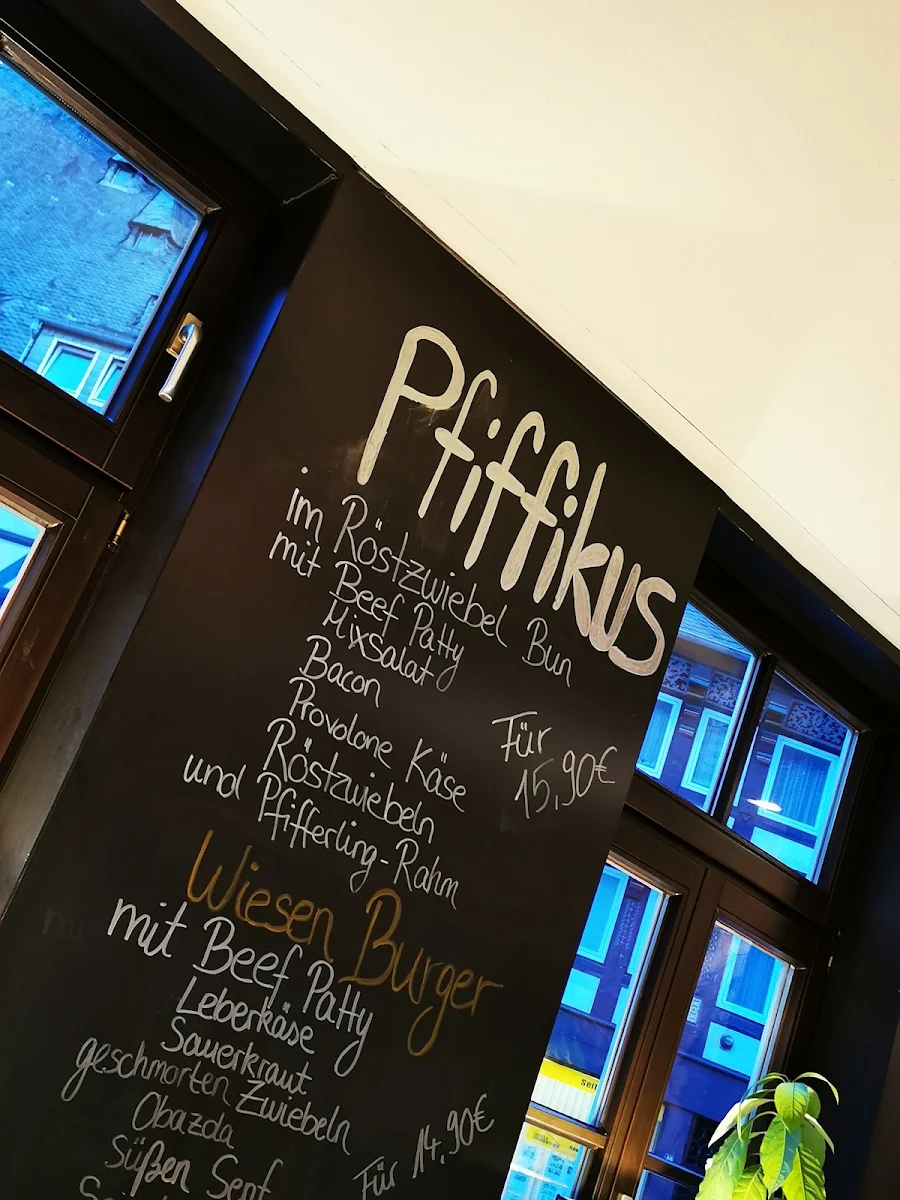 Pfiffikus
im Röstzwiebel Bun
mit Beef Patty
Mixsalat
Bacon
Provolone Käse
Röstzwiebeln
und Pfifferling-Rahm
Für
15,90€
Wiesen Burger
mit Beef Patty
Leberkäse
Sauerkraut
geschmorten Zwiebeln
Obazda
Süßen Senf
Für 14,90€
Seit